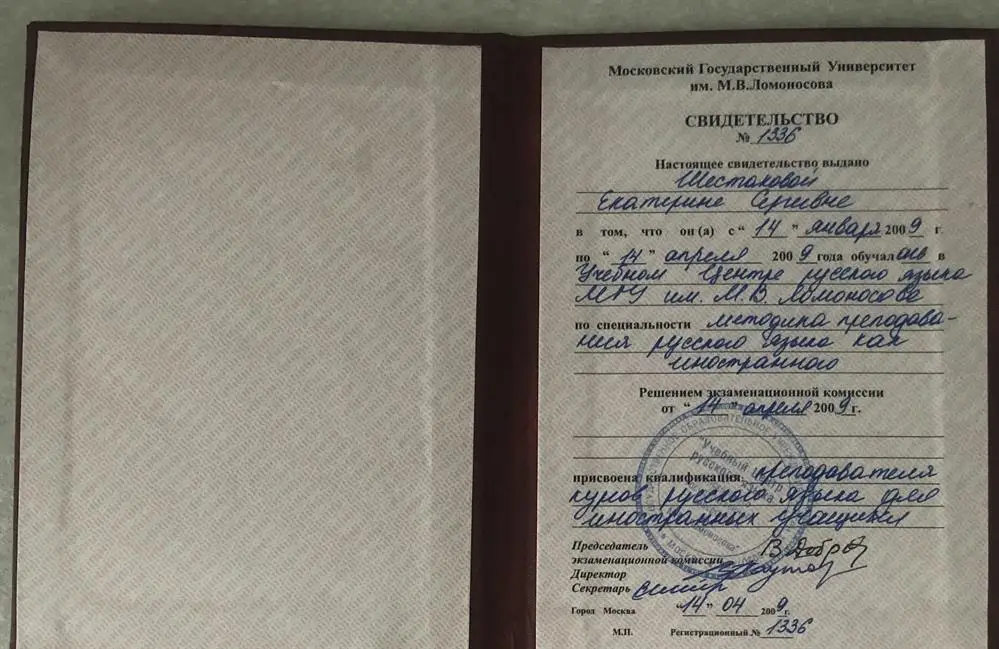 Московский Государственный Университет
им. М.В.Ломоносова
СВИДЕТЕЛЬСТВО
№ 1336
Настоящее свидетельство выдано
Шестаковой
Екатерине Сергеевне
в том, что он(а) с “ 14 ” января 2009 г.
по “ 14 ” апреля 2009 года обучалась в
Учебном Центре русского языка
МГУ им. М.В. Ломоносова
по специальности методика преподава-
ния русского языка как
иностранного
Решением экзаменационной комиссии
от “ 14 ” апреля 2009 г.
присвоена квалификация преподавателя
курсов русского языка для
иностранных учащихся
Председатель
экзаменационной комиссии
Директор
Секретарь
Город Москва “14” 04 2009 г.
М.П. Регистрационный № 1336
"Учебный центр
русского языка